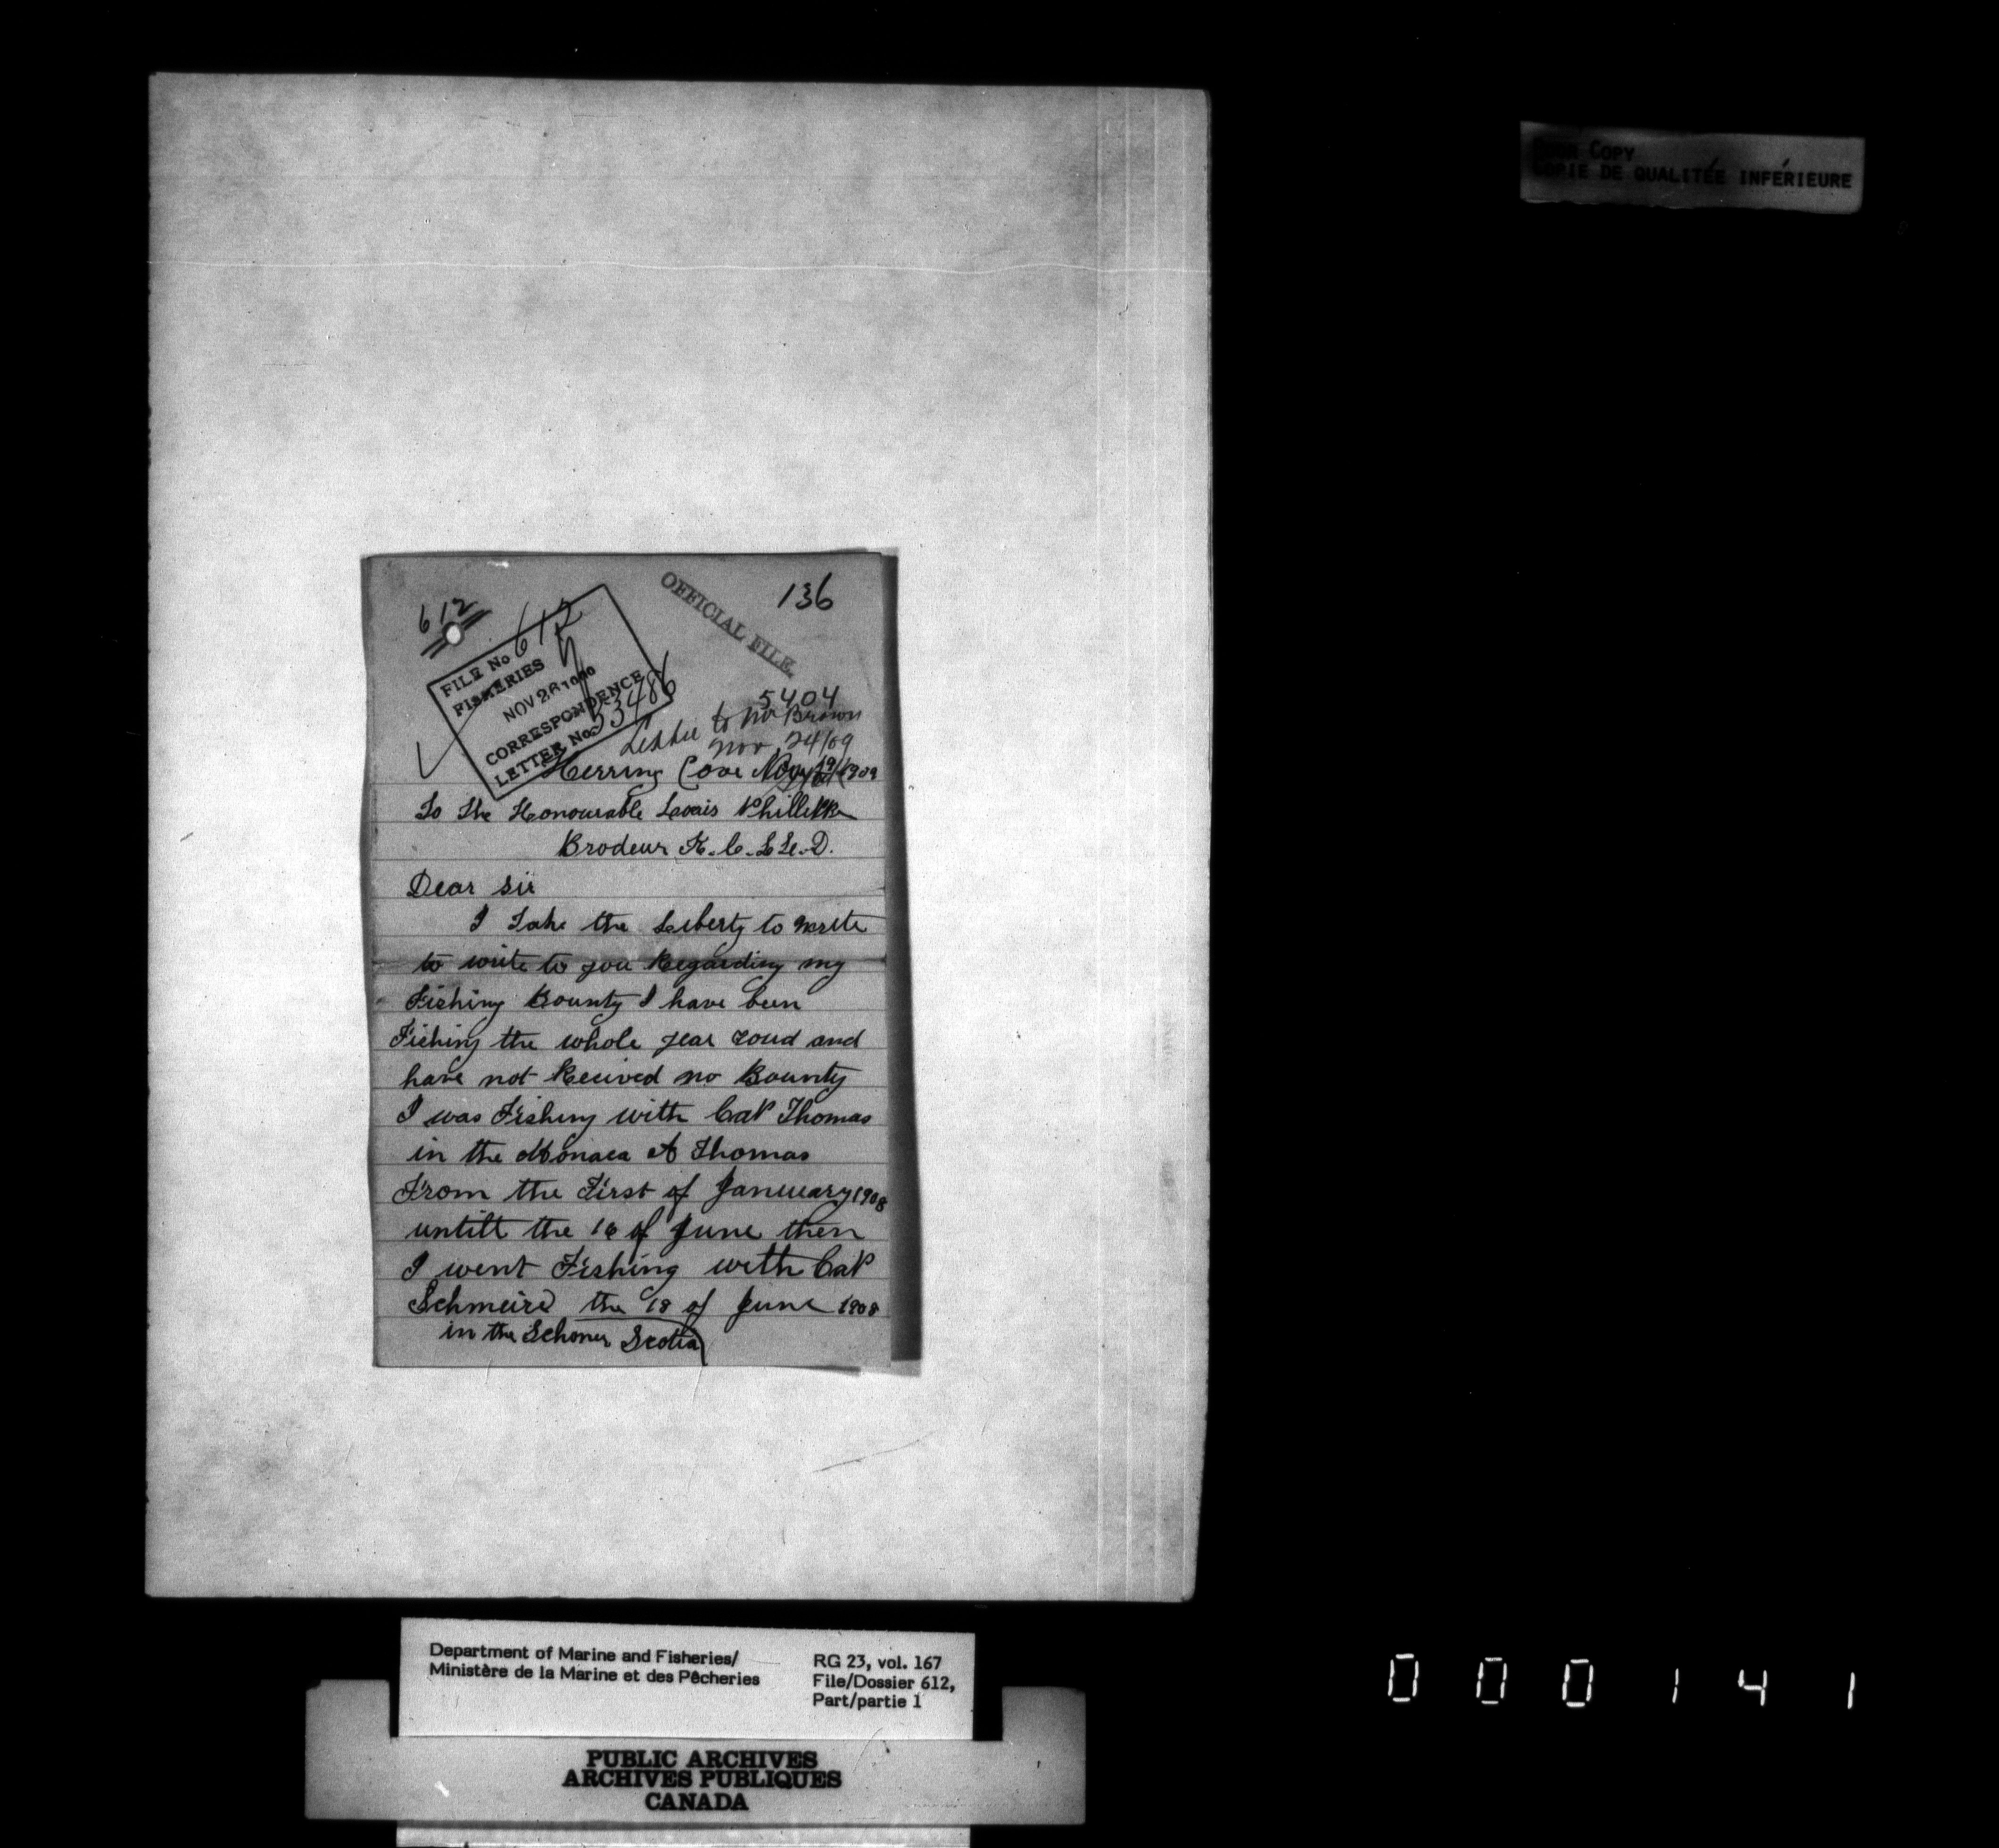 COPY
COPIE DE QUALITÉE INFÉRIEURE
136
OFFICIAL FILE
612
FILE No 612
FISHERIES
NOV 26
CORRESPONDENCE
LETTER No. 33486
5404
to Mr Brown
Nov 24/09
Herring Cove Nov 1909
To The Honourable Louis Phillippe
Brodeur K.C.LL.D.
Dear sir
I Take the Liberty to write
to write to you Regarding my
Fishing Bounty I have been
Fishing the whole year roud and
have not Recived no Bounty
I was Fishing with CaP Thomas
in the Monaca A Thomas
From the First of Januuary 1908
untill the 16 of June then
I went Fishing with CaP
the 18 of June 1908
in the Schoner Scotia
Department of Marine and Fisheries/
Ministère de la Marine et des Pêcheries
RG 23, vol. 167
File/Dossier 612,
Part/partie 1
PUBLIC ARCHIVES
ARCHIVES PUBLIQUES
CANADA
000141